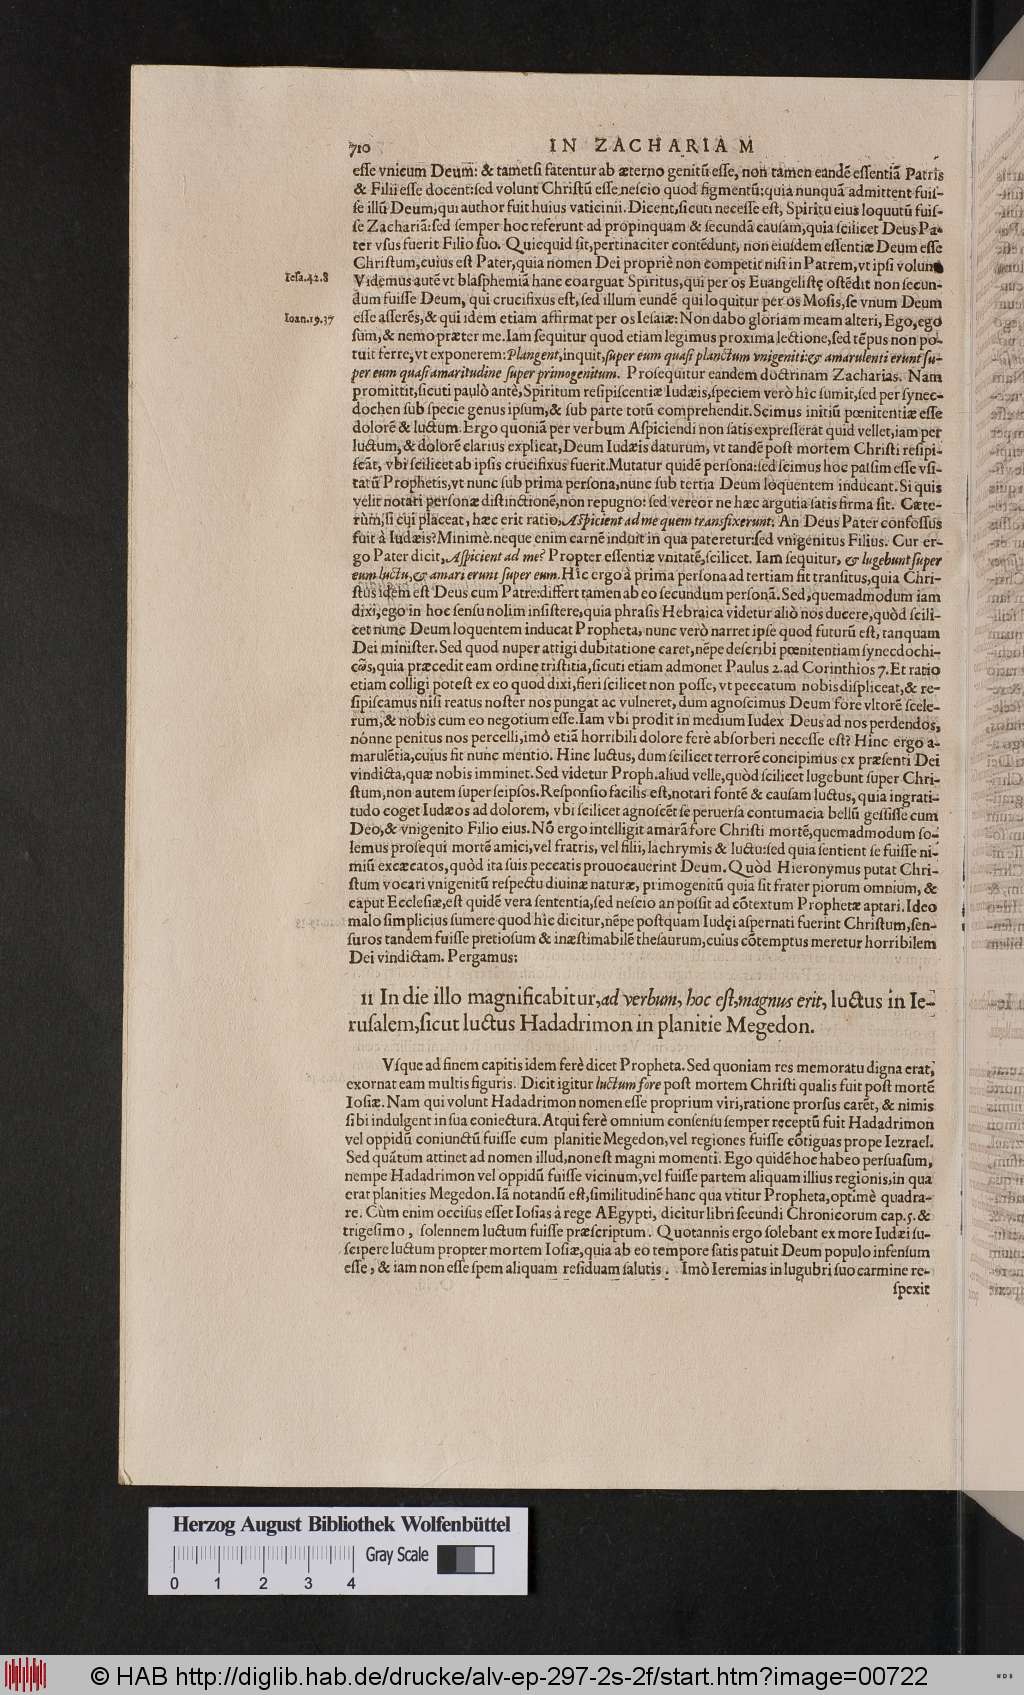 710 IN ZACHARIAM
eſſe vnicum Deum: & tametſi fatentur ab æterno genitū eſſe, non tamen eandē eſſentiā Patris
& Filii eſſe docent: ſed volunt Chriſtū eſſe neſcio quod figmentū: quia nunquā admittent fuiſ-
ſe illū Deum, qui author fuit huius vaticinii. Dicent, ſicuti neceſſe eſt, Spiritu eius loquutū fuiſ-
ſe Zachariā: ſed ſemper hoc referunt ad propinquam & ſecundā cauſam, quia ſcilicet Deus Pa-
ter vſus fuerit Filio ſuo. Quicquid ſit, pertinaciter contēdunt, non eiuſdem eſſentiæ Deum eſſe
Chriſtum, cuius eſt Pater, quia nomen Dei propriè non competit niſi in Patrem, vt ipſi volunt
Ieſa. 42. 8
Videmus autē vt blaſphemiā hanc coarguat Spiritus, qui per os Euangeliſtę oſtēdit non ſecun-
dum fuiſſe Deum, qui crucifixus eſt, ſed illum eundē qui loquitur per os Moſis, ſe vnum Deum
Ioan. 19. 37
eſſe aſſerēs, & qui idem etiam affirmat per os Ieſaiæ: Non dabo gloriam meam alteri, Ego, ego
ſum, & nemo præter me. Iam ſequitur quod etiam legimus proxima lectione, ſed tēpus non po-
tuit ferre, vt exponerem: Plangent, inquit, ſuper eum quaſi planctum vnigeniti: & amarulenti erunt ſu-
per eum quaſi amaritudine ſuper primogenitum. Proſequitur eandem doctrinam Zacharias. Nam
promittit, ſicuti paulò antè, Spiritum reſipiſcentiæ Iudæis, ſpeciem verò hic ſumit, ſed per ſynec-
dochen ſub ſpecie genus ipſum, & ſub parte totū comprehendit. Scimus initiū pœnitentiæ eſſe
dolorē & luctum. Ergo quoniā per verbum Aſpiciendi non ſatis expreſſerat quid vellet, iam per
luctum, & dolorē clarius explicat, Deum Iudæis daturum, vt tandē poſt mortem Chriſti reſipi-
ſcāt, vbi ſcilicet ab ipſis crucifixus fuerit. Mutatur quidē perſona: ſed ſcimus hoc paſſim eſſe vſi-
tatū Prophetis, vt nunc ſub prima perſona, nunc ſub tertia Deum loquentem inducant. Si quis
velit notari perſonæ diſtinctionē, non repugno: ſed vereor ne hæc argutia ſatis firma ſit. Cæte-
rùm, ſi cui placeat, hæc erit ratio, Aſpicient ad me quem transfixerunt. An Deus Pater confoſſus
fuit à Iudæis? Minimè. neque enim carnē induit in qua pateretur: ſed vnigenitus Filius. Cur er-
go Pater dicit, Aſpicient ad me? Propter eſſentiæ vnitatē, ſcilicet. Iam ſequitur, & lugebunt ſuper
eum luctu, & amari erunt ſuper eum. Hîc ergo à prima perſona ad tertiam fit tranſitus, quia Chri-
ſtus idem eſt Deus cum Patre: differt tamen ab eo ſecundum perſonā. Sed, quemadmodum iam
dixi, ego in hoc ſenſu nolim inſiſtere, quia phraſis Hebraica videtur aliò nos ducere, quòd ſcili-
cet nunc Deum loquentem inducat Propheta, nunc verò narret ipſe quod futurū eſt, tanquam
Dei miniſter. Sed quod nuper attigi dubitatione caret, nēpe deſcribi pœnitentiam ſynecdochi-
cῶs, quia præcedit eam ordine triſtitia, ſicuti etiam admonet Paulus 2. ad Corinthios 7. Et ratio
etiam colligi poteſt ex eo quod dixi, fieri ſcilicet non poſſe, vt peccatum nobis diſpliceat, & re-
ſipiſcamus niſi reatus noſter nos pungat ac vulneret, dum agnoſcimus Deum fore vltorē ſcele-
rum, & nobis cum eo negotium eſſe. Iam vbi prodit in medium Iudex Deus ad nos perdendos,
nónne penitus nos percelli, imò etiā horribili dolore ferè abſorberi neceſſe eſt? Hinc ergo a-
marulētia, cuius fit nunc mentio. Hinc luctus, dum ſcilicet terrorē concipimus ex præſenti Dei
vindicta, quæ nobis imminet. Sed videtur Proph. aliud velle, quòd ſcilicet lugebunt ſuper Chri-
ſtum, non autem ſuper ſeipſos. Reſponſio facilis eſt, notari fontē & cauſam luctus, quia ingrati-
tudo coget Iudæos ad dolorem, vbi ſcilicet agnoſcēt ſe peruerſa contumacia bellū geſſiſſe cum
Deo, & vnigenito Filio eius. Nō ergo intelligit amarā fore Chriſti mortē, quemadmodum ſo-
lemus proſequi mortē amici, vel fratris, vel filii, lachrymis & luctu: ſed quia ſentient ſe fuiſſe ni-
miū excæcatos, quòd ita ſuis peccatis prouocauerint Deum. Quòd Hieronymus putat Chri-
ſtum vocari vnigenitū reſpectu diuinæ naturæ, primogenitū quia ſit frater piorum omnium, &
caput Eccleſiæ, eſt quidē vera ſententia, ſed neſcio an poſſit ad cōtextum Prophetæ aptari. Ideo
malo ſimplicius ſumere quod hîc dicitur, nēpe poſtquam Iudęi aſpernati fuerint Chriſtum, ſen-
ſuros tandem fuiſſe pretioſum & inæſtimabilē theſaurum, cuius cōtemptus meretur horribilem
Dei vindictam. Pergamus:
11 In die illo magnificabitur, ad verbum, hoc eſt, magnus erit, luctus in Ie-
ruſalem, ſicut luctus Hadadrimon in planitie Megedon.
Vſque ad finem capitis idem ferè dicet Propheta. Sed quoniam res memoratu digna erat,
exornat eam multis figuris. Dicit igitur luctum fore poſt mortem Chriſti qualis fuit poſt mortē
Ioſiæ. Nam qui volunt Hadadrimon nomen eſſe proprium viri, ratione prorſus carēt, & nimis
ſibi indulgent in ſua coniectura. Atqui ferè omnium conſenſu ſemper receptū fuit Hadadrimon
vel oppidū coniunctū fuiſſe cum planitie Megedon, vel regiones fuiſſe cōtiguas prope Iezrael.
Sed quātum attinet ad nomen illud, non eſt magni momenti. Ego quidē hoc habeo perſuaſum,
nempe Hadadrimon vel oppidū fuiſſe vicinum, vel fuiſſe partem aliquam illius regionis, in qua
erat planities Megedon. Iā notandū eſt, ſimilitudinē hanc qua vtitur Propheta, optimè quadra-
re. Cùm enim occiſus eſſet Ioſias à rege AEgypti, dicitur libri ſecundi Chronicorum cap. 5. &
trigeſimo, ſolennem luctum fuiſſe præſcriptum. Quotannis ergo ſolebant ex more Iudæi ſu-
ſcipere luctum propter mortem Ioſiæ, quia ab eo tempore ſatis patuit Deum populo infenſum
eſſe, & iam non eſſe ſpem aliquam reſiduam ſalutis. Imò Ieremias in lugubri ſuo carmine re-
ſpexit
Herzog August Bibliothek Wolfenbüttel
Gray Scale
0 1 2 3 4
© HAB http://diglib.hab.de/drucke/alv-ep-297-2s-2f/start.htm?image=00722